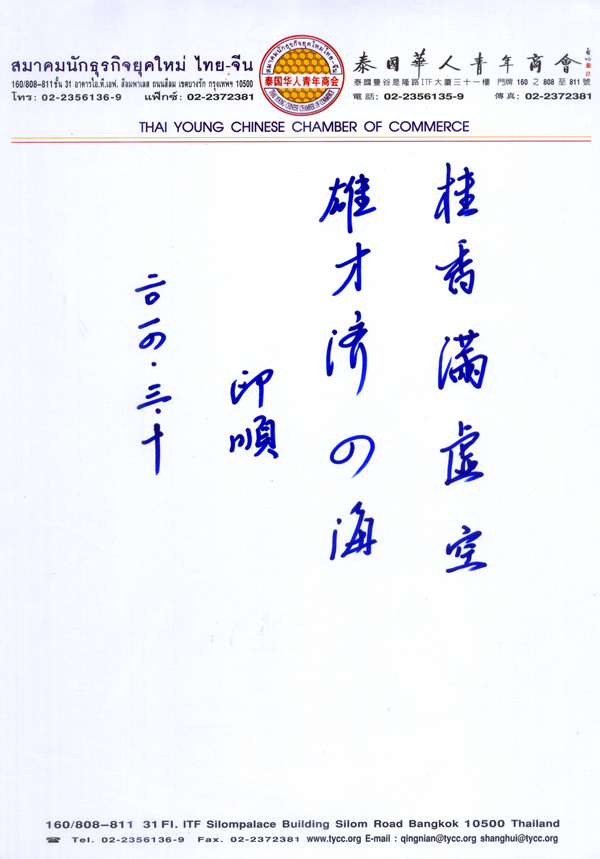 สมาคมนักธุรกิจยุคใหม่ ไทย-จีน
160/808-811ชั้น 31 อาคารไอ.ที.เอฟ. สีลมพาเลส ถนนสีลม เขตบางรัก กรุงเทพฯ 10500
โทร: 02-2356136-9 แฟ็กซ์: 02-2372381
สมาคมนักธุรกิจยุคใหม่ไทย-จีน
泰国华人青年商会
THAI YOUNG CHINESE CHAMBER OF COMMERCE
泰國華人青年商會
泰國曼谷是隆路ITF大廈三十一樓 門牌 160 之 808 至 811 號
電話: 02-2356135-9 傳真: 02-2372381
THAI YOUNG CHINESE CHAMBER OF COMMERCE
桂香滿虛空
雄才濟四海
印順
二〇一四.三.十
160/808-811 31 Fl. ITF Silompalace Building Silom Road Bangkok 10500 Thailand
☎ Tel. 02-2356136-9 Fax. 02-2372381 www.tycc.org E-mail : qingnian@tycc.org shanghui@tycc.org